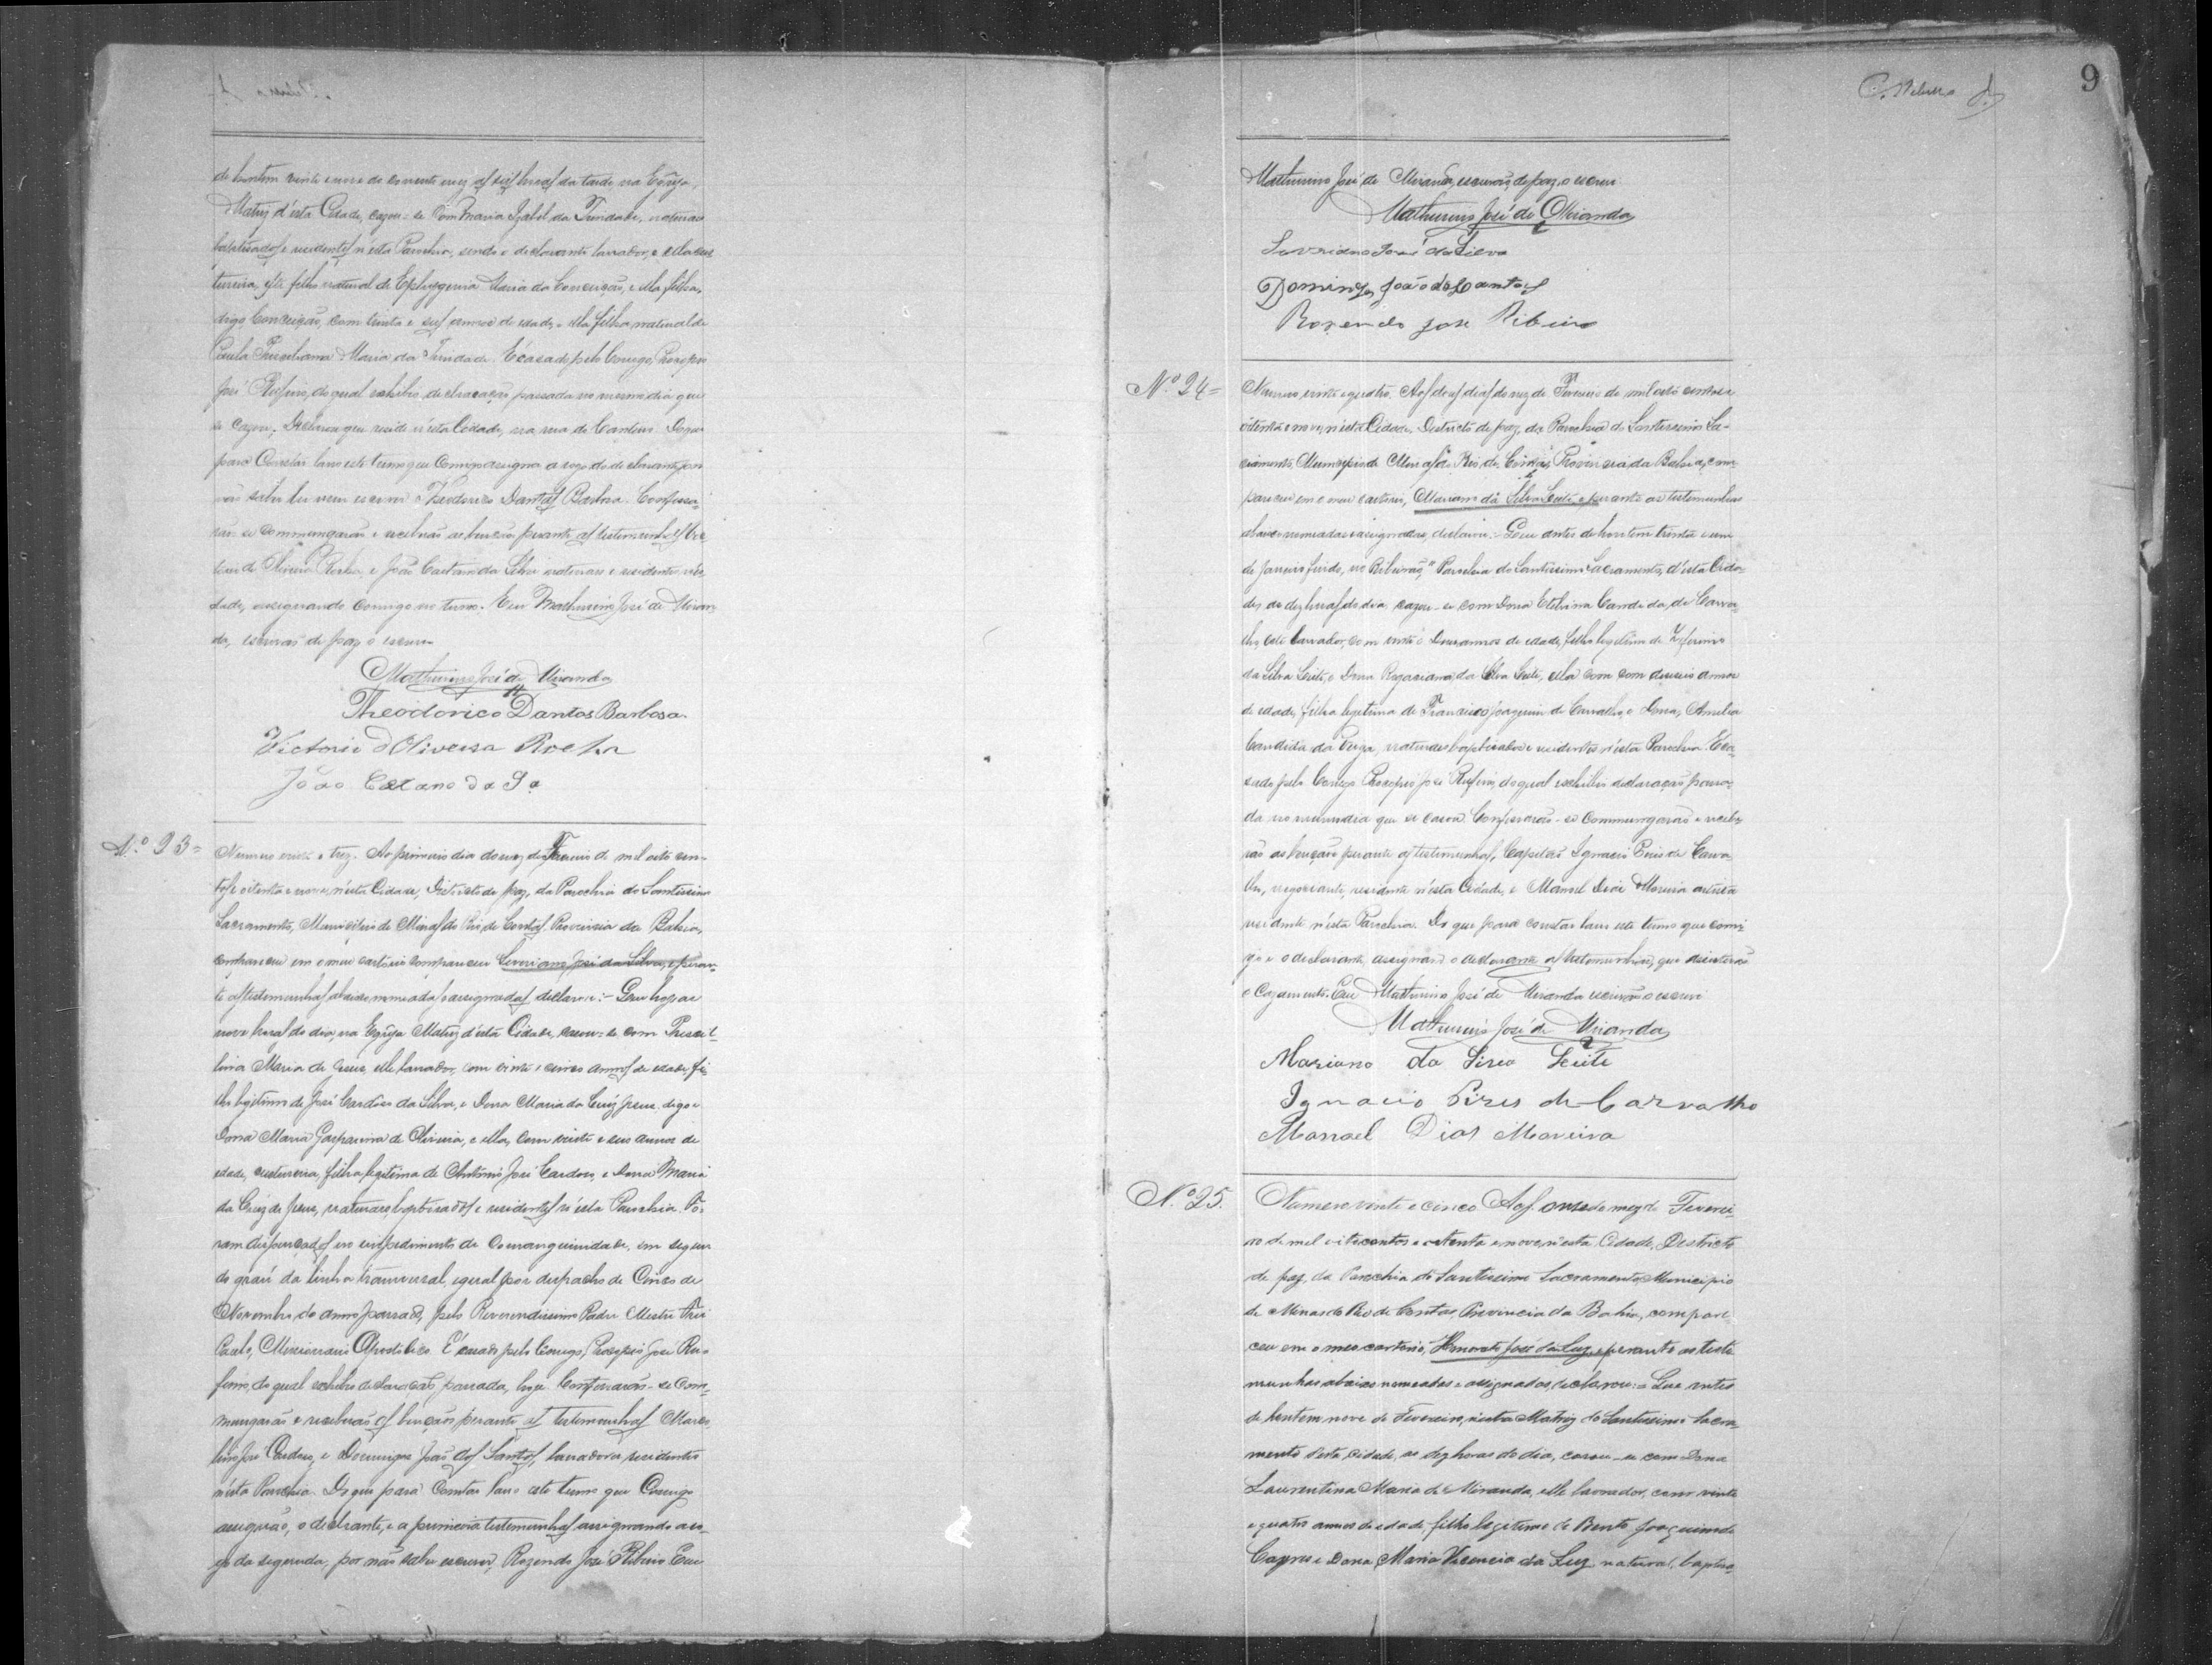 de hontem vinte e nove do corrente mez as seis horas da tarde na Egreja
Matriz d'esta Cidade, cazou-se com Maria Izabel da Trindade, naturaes
baptisados e residentes n'esta Parochia, sendo o declarante lavrador, e ella cos
tureira, elle filho natural de Ephygenia Maria da Conceição, e ella filha,
digo Conceição, com trinta e seis annos de idade, e ella filha natural de
Maria da Trindade. E casado pelo Conego Procopio
José Rufino, do qual exhibio declaração passada no mesmo dia que
se cazou. Declarou que reside n'esta Cidade, na rua de Do que
para Constar lavro este termo que Comigo assigna a rogo do declarante por
não saber ler nem escrever Theodorico Dantas Barbosa. Confessa-
rão se commungarão e receberão as bençãos perante as testemunhas Vic
torio de Oliveira Rocha, e João Caetano da Silva naturaes e residentes n'es
dade, assignando Comigo no termo. Eu Mathurino José de Miran
da, escrivão de paz o escrevi
Mathurino José de Miranda
Theodorico Dantas Barbosa.
Victorio d'Oliveira Rocha
João Cetano da Sa
Nº 23=
Numero vinte e trez. Ao primeiro dia do mez de Fevereiro de mil oito cen-
tos e oitenta e nove, n'esta Cidade, Districto de paz, da Parochia do Santissimo
Sacramento, Municipio de Minas do Rio de Contas, Provincia da Bahia,
compareceu em o meu cartorio compareceu Severiano José da Silva, e peran-
te as testemunhas abaixo nomeadas e assignadas declarou:- Que hoje as
nove horas do dia, na Egreja Matriz d'esta Cidade, casou-se com Priscil-
liana Maria de Jesus, elle lavrador, com vinte e cinco annos de idade, fi-
lho legitimo de José Cardoso da Silva, e Dona Maria da Cruz Jesus digo e
Dona Maria Gasparina de Oliveira, e ella, com vinte e seis annos de
idade, costureira, filha legitima de Antonio José Cardoso, e Dona Maria
da Cruz de Jesus, naturaes, baptisados e residentes n'esta Parochia. Fo-
ram dispensados no impedimento de Consanguinidade, em segun
do gráu da linha transversal, egual por despacho de Cinco de
Novembro do anno passado, pelo Reverendissimo Padre Mestre Frei
Paulo, Missionario Apostolico. É casado pelo Conego Procopio José Ru-
fino, do qual exhibio declaração passada, hoje. Confessarão-se Com-
mungarão e receberão as bençãos perante as testemunhas Marco
lino José Cardoso, e Domingos João dos Santos, lavradores residentes
n'esta Parochia. Do que para Constar lavro este termo que Comigo
assignão, o declarante, e a primeira testemunhas assignando a ro-
go da segunda, por não saber escrever, Rozendo José Ribeiro Eu
9
Mathurino José de Miranda, escrivão de paz, o escrevi
Mathurino José de Miranda
Severiano José da Silva
Domingos João dos Santos
Rozendo José Ribeiro
Nº 24=
Numero vinte e quatro. Aos dous dias do mez de Fevereiro de mil oito centos e
oitenta e nove, n'esta Cidade, Districto de paz, da Parochia do Santissimo Sa-
cramento, Municipio de Minas do Rio de Contas, Provincia da Bahia, com-
pareceu em o meu cartorio, Mariano da Silva Leite e perante as testemunhas
abaixo nomeadas e assignadas, declarou:- Que antes de hontem trinta e um
de Janeiro findo, no Ribeirão, Parochia do Santissimo Sacramento, d'esta Cida-
de, as dez horas do dia, cazou-se com Dona Etelvina Candida de Carva-
lho, este lavrador, com vinte e dous annos de idade, filho legitimo de Zeferino
da Silva Leite, e Dona da Silva Leite, ella com com deseseis annos
de idade, filha legitima de Francisco Joaquim de Carvalho, e Dona Amelia
Candida da naturaes baptisados e residentes n'esta Parochia. E ca-
sado pelo Conego Procopio José Rufino, do qual exhibio declaração passa-
da no mesmo dia que se casou. Confessarão-se Commungarão e recebe-
rão as bençãos perante as testemunhas, Capitão Ignacio Pires de Carva
lho, negociante, residente n'esta Cidade, e Manoel Dias Moreira artista
residente n'esta Parochia. Do que para constar lavro este termo que comi-
go e o declarante, assignão o declarante as testemunhas, que assistirão
o Cazamento. Eu Mathurino José de Miranda escrivão o escrevi
Mathurino José de Miranda
Mariano da Silva Leite
Ignacio Pires de Carvalho
Manoel Dias Moreira
Nº 25.
Numero vinte e cinco Aos onse do mez de Feverei-
ro de mil oitocentos e oitenta e nove, n'esta Cidade, Districto
de paz, da Parochia do Santissimo Sacramento Municipio
de Minas do Rio de Contas, Provincia da Bahia, compare
ceu em o meo cartorio, Honorato José da Luz, e perante as teste
munhas abaixo nomeadas e assignados, declarou:= Que antes
de hontem nove de Fevereiro, n'esta Matriz do Santissimo Sacra-
mento desta cidade, as dez horas do dia, casou-se com Dona
Laurentina Maria de Miranda, elle lavrador, com vinte
e quatro annos de idade filho legitimo de Bento Joaquim de
e Dona Maria Vicencia da Luz natural, baptisa-